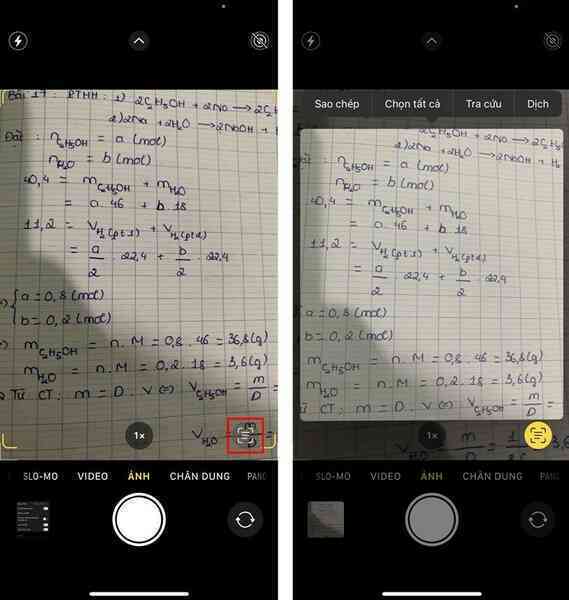 Bài 17: PTHH: 1) 2C₂H₅OH + 2Na → 2C₂H
2) 2Na + 2H₂O → 2NaOH + H
Đặt: n_C₂H₅OH = a (mol)
n_H₂O = b (mol)
40,4 = m_C₂H₅OH + m_H₂O
= a. 46 + b. 18
11,2 = V_H₂(pt1) + V_H₂(pt2)
= a/2 . 22,4 + b/2 . 22,4
a = 0,8 (mol)
b = 0,2 (mol)
m_C₂H₅OH = n. M = 0,8. 46 = 36,8 (g)
m_H₂O = n. M = 0,2. 18 = 3,6 (g)
Từ CT: m = D. V ⇔ V_C₂H₅OH = m/D =
V_H₂O
1x
SLO-MO VIDEO ẢNH CHÂN DUNG PANO
Sao chép Chọn tất cả Tra cứu Dịch
2C₂H₅OH + 2Na → 2C₂H
2) 2Na + 2H₂O → 2NaOH + H₂
n_C₂H₅OH = a (mol)
n_H₂O = b (mol)
40,4 = m_C₂H₅OH + m_H₂O
= a. 46 + b. 18
11,2 = V_H₂(pt1) + V_H₂(pt2)
= a/2 . 22,4 + b/2 . 22,4
a = 0,8 (mol)
b = 0,2 (mol)
m_C₂H₅OH = n. M = 0,8. 46 = 36,8 (g)
m_H₂O = n. M = 0,2. 18 = 3,6 (g)
Từ CT: m = D. V ⇔ V_C₂H₅OH = m/D
V_H₂O = m/D =
1x
SLO-MO VIDEO ẢNH CHÂN DUNG PANO